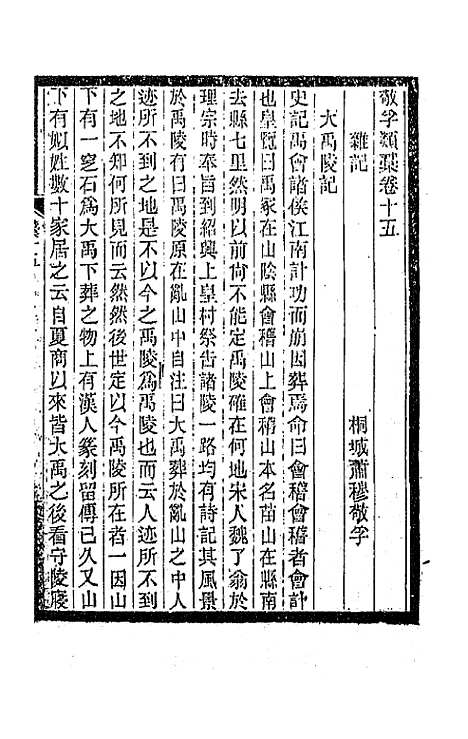 敬孚類槀卷十五
雜記
桐城蕭穆敬孚
大禹陵記
史記禹會諸侯江南計功而崩因葬焉命曰會稽會稽者會計
也皇覽曰禹冢在山陰縣會稽山上會稽山本名苗山在縣南
去縣七里然明以前尙不能定禹陵確在何地宋人魏了翁於
理宗時奉旨到紹興上皇村祭告諸陵一路均有詩記其風景
於禹陵有曰禹陵原在亂山中自注曰大禹葬於亂山之中人
迹所不到之地是不以今之禹陵爲禹陵也而云人迹所不到
之地不知何所見而云然然後世定以今禹陵所在者一因山
下有一窆石爲大禹下葬之物上有漢人篆刻留傳已久又山
下有姒姓數十家居之云自夏商以來皆大禹之後看守陵寢